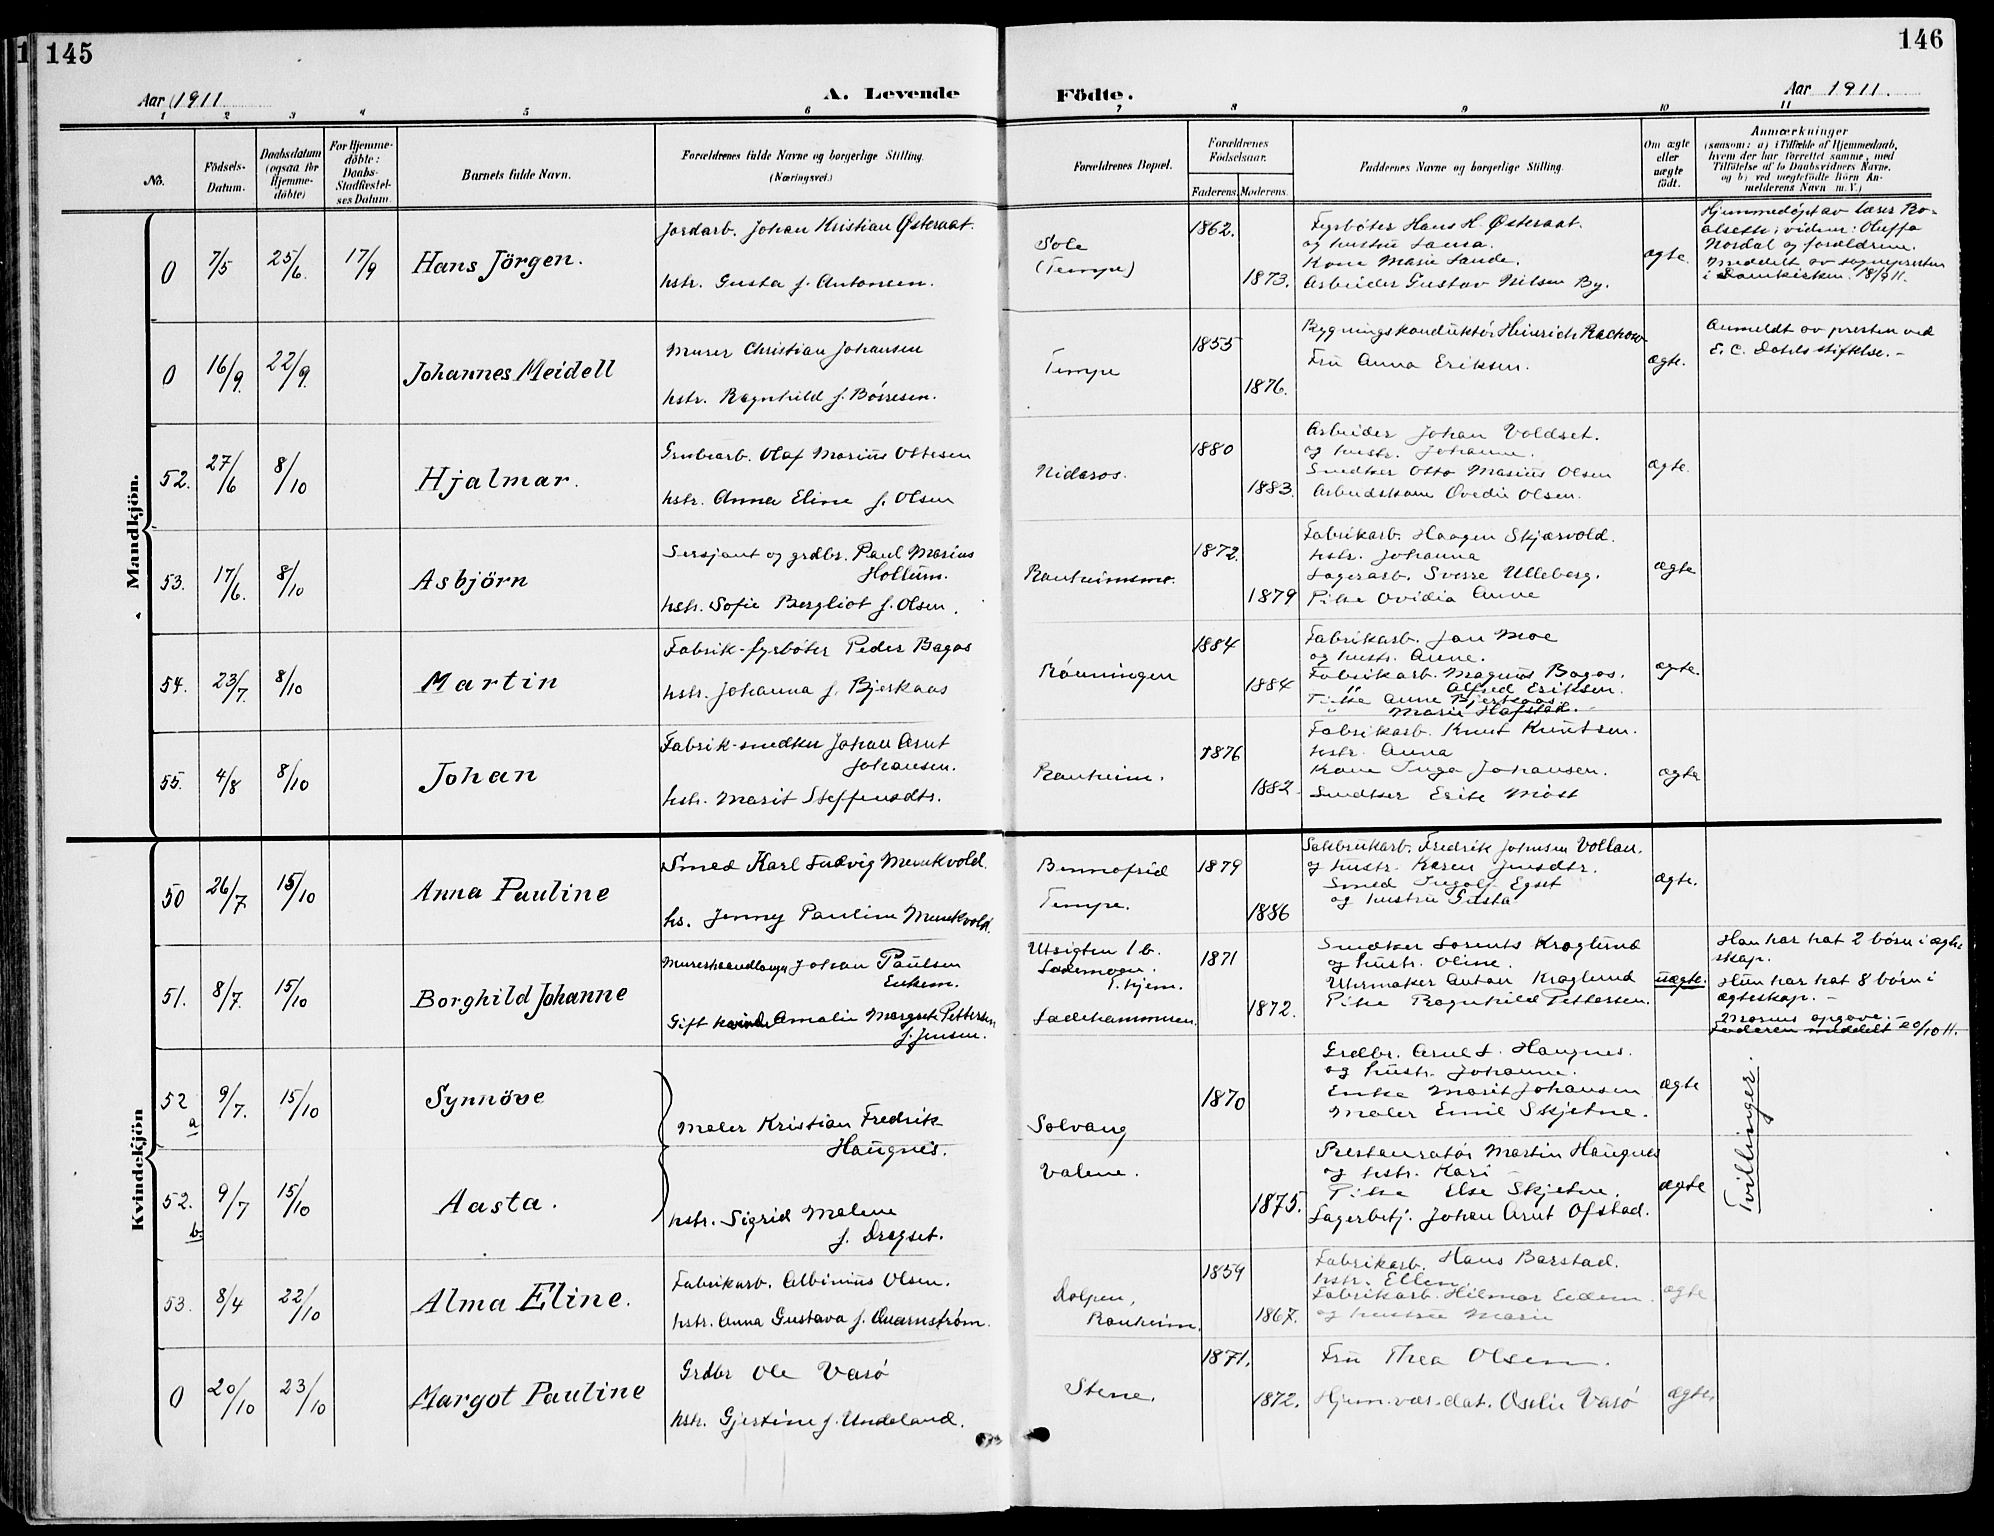 145
146
Aar 1911
A. Levende
Födte.
Aar 1911.
1 2 3 4 5 6 7 8 9 10 11
No.
Födsels-
Datum.
Daabsdatum
(ogsaa for
Hjemme-
döbte)
For Hjemme-
döbte:
Daabs-
Stadfæstel-
ses Datum.
Barnets fulde Navn.
Forældrenes fulde Navne og borgerlige Stilling.
(Næringsvei.)
Forældrenes Bopæl.
Forældrenes
Födselsaar.
Faderens. Moderens.
Faddernes Navne og borgerlige Stilling.
Om ægte
eller
uægte
födt.
Anmærkninger
(saasom: a) i Tilfælde af Hjemmedaab,
hvem der har forrettet samme, med
Tilföielse af to Daabsvidners Navne.
og b) ved uægtefödte Börn An-
melderens Navn m. V.)
Mandkjön.
0 7/5 25/6. 17/9 Hans Jörgen.
Jordarb. Johan Kristian Østeraat.
hstr. Gusta f. Antonsen.
Sole
(Tempe)
1862.
1873.
Fyrbøter Hans H. Østeraat.
og hustru Laura.
Kone Marie Sande.
Arbeider Gustav Nilsen By.
ægte.
Hjemmedøpt av lærer Ro-
alsett; vidner: Oluffa
Nordal og forældrene.
Meddelt av sognepresten
i Domkirken. 18/9 11.
0 16/9. 22/9. Johannes Meidell
Murer Christian Johansen
hstr. Ragnhild f. Børresen.
Tempe
1855
1876.
Bygningskonduktør Heinrich Rachow
Fru Anna Eriksen.
ægte.
Anmeldt av presten ved
E. C. Dahls stiftelse. –
52. 27/6 8/10 Hjalmar.
Grubearb. Olaf Marius Ottesen
hstr. Anna Eline f. Olsen
Nidaros.
1880
1883.
Arbeider Johan Voldset.
og hustr. Johanne.
Snedker Otto Marius Olsen
Arbeidskone Ovedie Olsen.
ægte.
53. 17/6. 8/10 Asbjörn
Sersjant og grdbr. Paul Marius
Hollum.
hstr. Sofie Bergliot f. Olsen.
Ranheimsmo.
1872.
1879
Fabrikarb. Haagen Skjærvold.
hstr. Johanna
Lagerarb. Sverre Ulleberg.
Pike Ovidia Aune
ægte
54. 23/7. 8/10 Martin
Fabrik-fyrbøter Peder Bagøs
hstr. Johanna f. Bjerkaas
Rønningen
1884
1884
Fabrikarb. Jon Moe
og hustr. Anne.
Fabrikarb. Magnus Bagøs.
" Alfred Eriksen.
Pike Anne Bjerkaas
" Marie Hofstad.
ægte.
55. 4/8 8/10 Johan
Fabrik-snedker Johan Arnt
Johansen.
hstr. Marit Steffensdtr.
Ranheim.
1876
1882
Fabrikarb. Knut Knutsen.
hstr. Anna
Kone Inga Johansen.
Snedker Erik Most
ægte
Kvindekjön
50 26/7 15/10 Anna Pauline
Smed Karl Ludvig Munkvold.
hs. Jenny Pauline Munkvold.
Bennofrid
Tempe.
1879
1886
Sakbrukarb. Fredrik Johnsen Vollan.
og hustr. Karen Jensdtr.
Smed Ingolf Egset
og hustru Gusta
ægte.
51. 8/7. 15/10 Borghild Johanne
Murerhaandlanger Johan Paulsen
Enhem.
Gift kvinde Amalie Margrete Pettersen
f. Jensen.
Utsigten 1 b.
Lademoen.
T.hjem.
Ladehammeren.
1871
1872.
Snedker Lorents Kraglund
og hustr. Oline.
Uhrmaker Anton Kraglund
Pike Ragnhild Pettersen.
uægte.
Han har hat 2 børn i ægte-
skap.
Hun har hat 8 børn i
ægteskap. –
Morens opgave. –
Faderen meddelt 20/10 11.
52 a 9/7. 15/10 Synnöve
Maler Kristian Fredrik
Haugnes.
Solvang
1870
Grdbr. Arnt L. Haugnes.
og hustr. Johanne.
Enke Marit Johansen
Maler Emil Skjetne.
ægte
Tvillinger.
52. b. 9/7 15/10 Aasta.
hstr. Sigrid Malene
f. Dragset.
Valene.
1875.
Restauratør Martin Haugnes
og hstr. Kari
Pike Else Skjetne.
Lagerbetj. Johan Arnt Ofstad.
ægte
53. 8/4 22/10 Alma Eline.
Fabrikarb. Albinius Olsen.
hstr. Anna Gustava f. Quarnstrøm.
Dalpen,
Ranheim.
1859
1867.
Fabrikarb. Hans Barstad.
hstr. Ellen.
Fabrikarb. Hilmar Eidem.
og hustru Marie
ægte
0 20/10 23/10 Margot Pauline
Grdbr Ole Vasø
hstr. Gjertine f. Undeland.
Stene.
1871.
1872.
Fru Thea Olsen.
Hjem.vær.dat. Oselie Vasø
ægte.